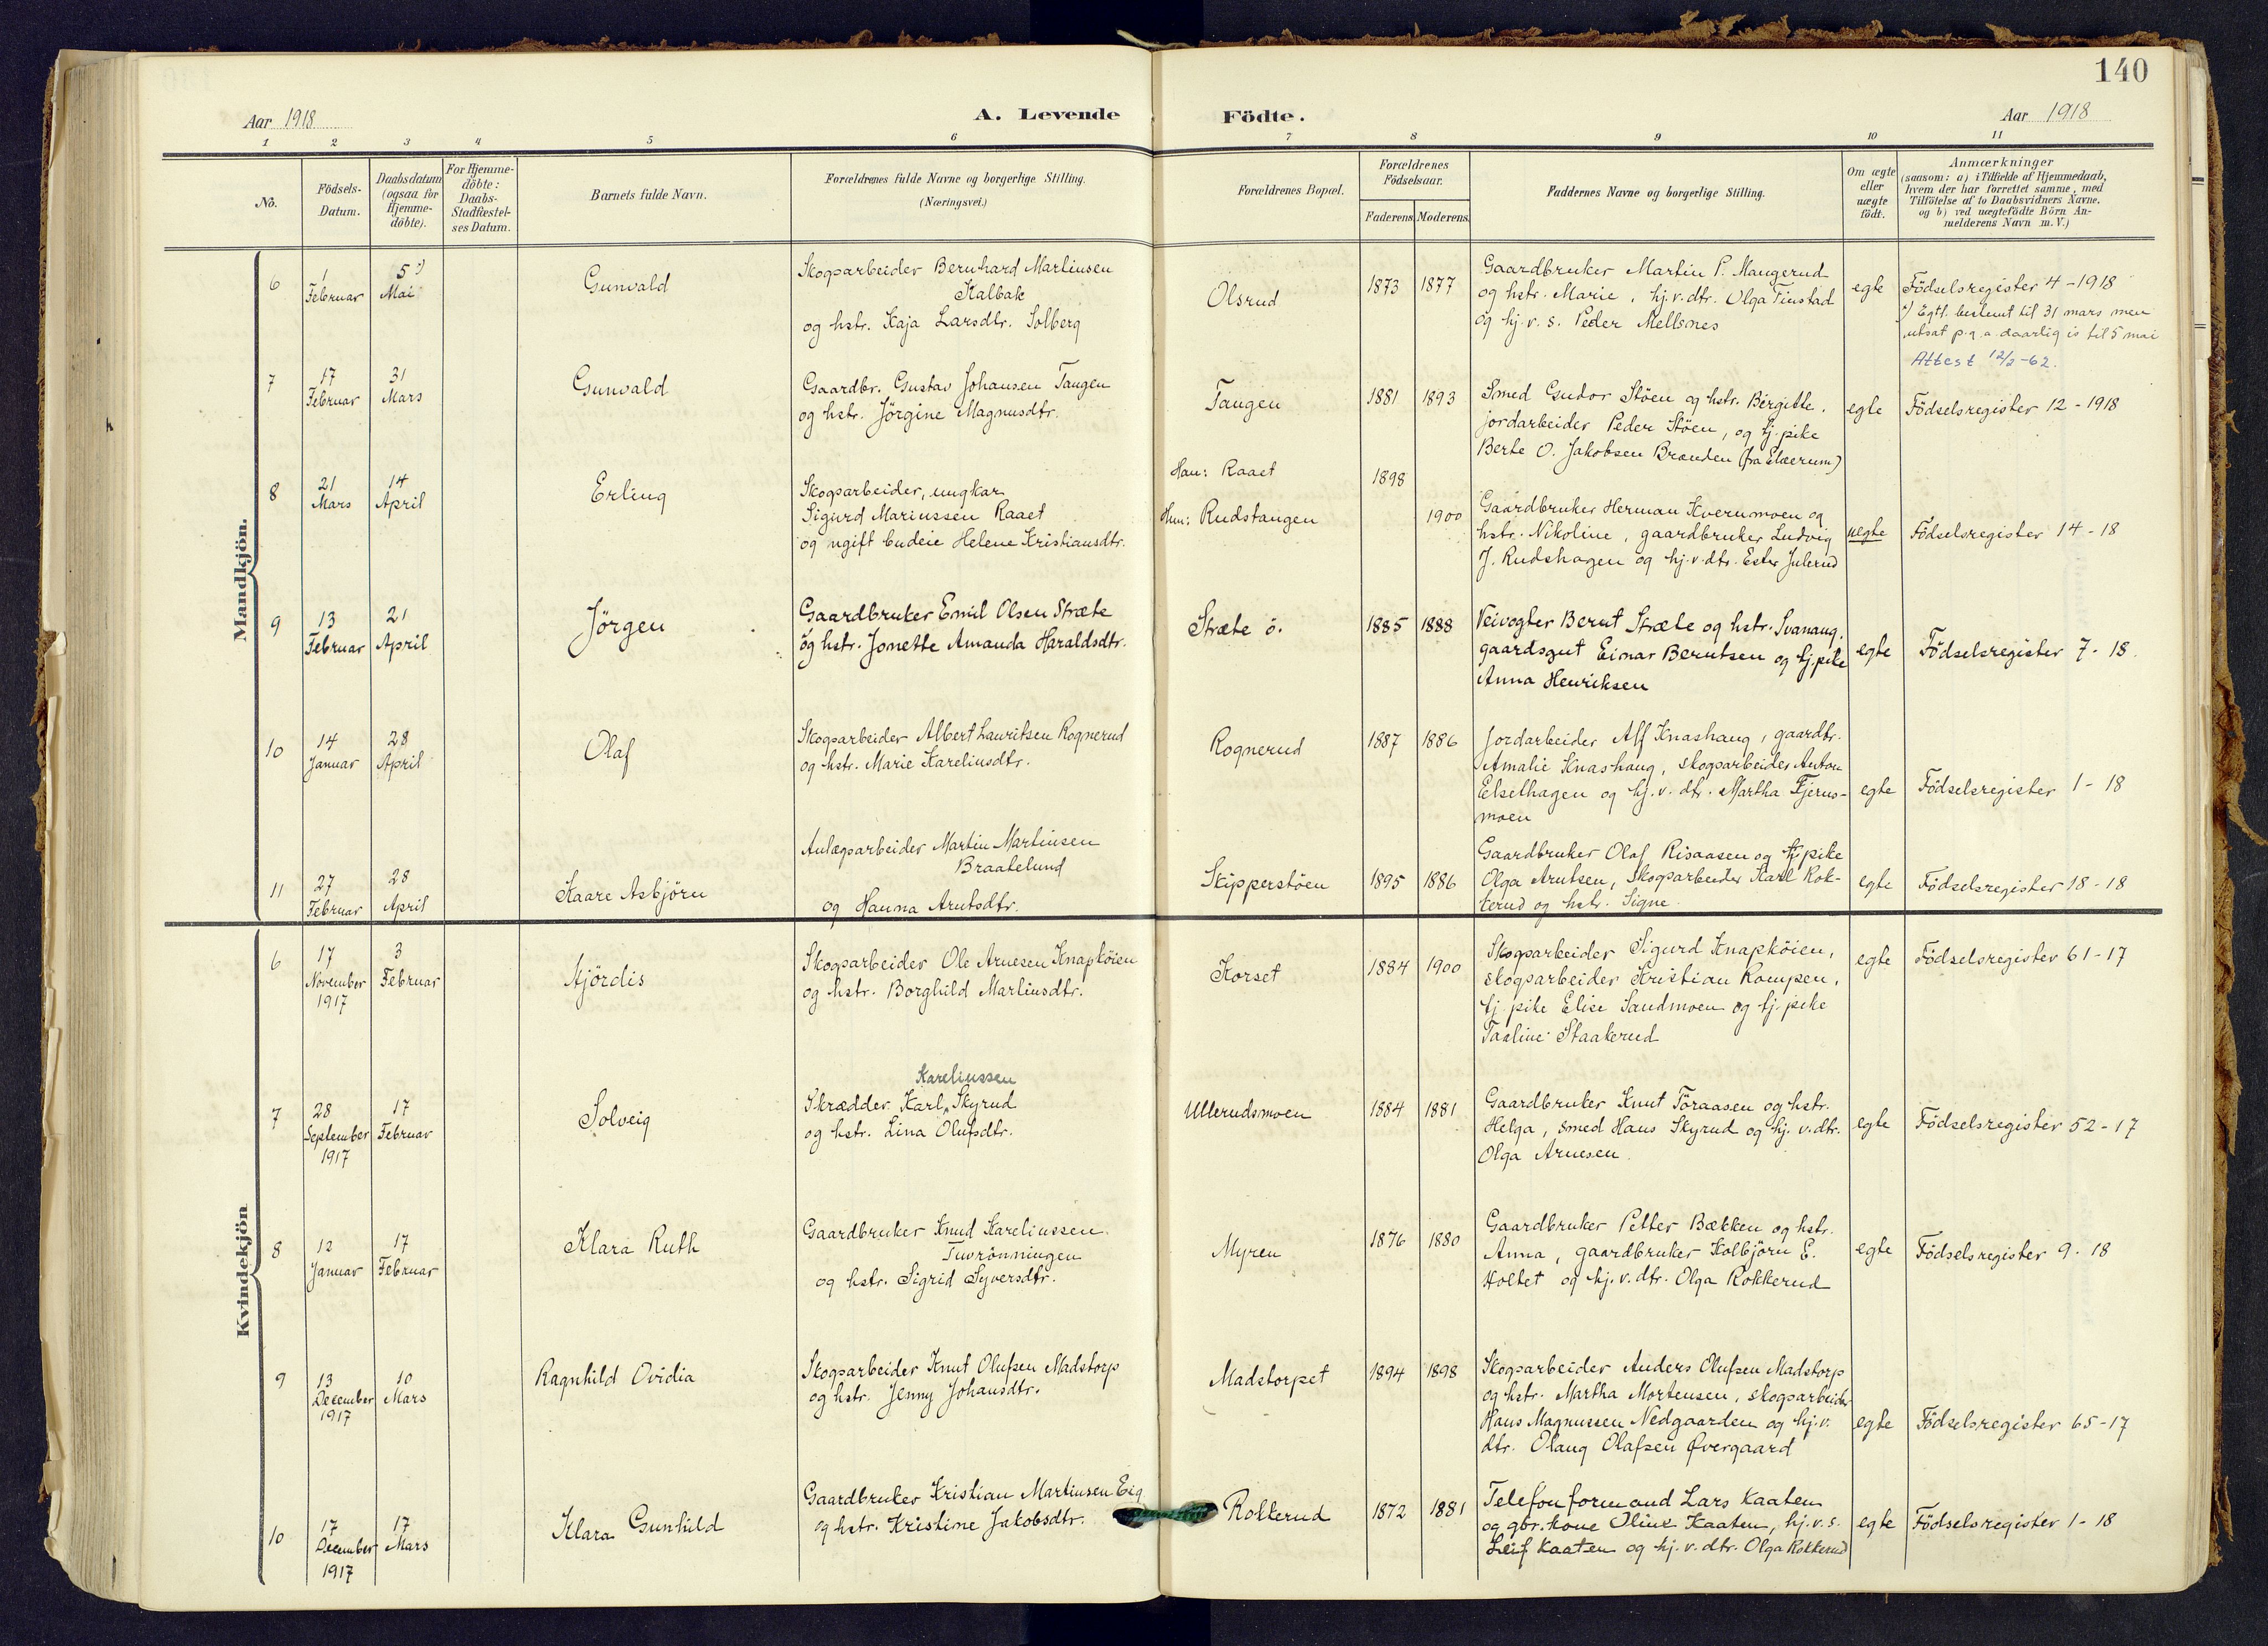 140
Aar 1918
A. Levende Födte.
Aar 1918
1 2 3 4 5 6 7 8 9 10 11
No.
Födsels-
Datum.
Daabsdatum
(ogsaa for
Hjemme-
döbte).
For Hjemme-
döbte:
Daabs-
Stadfæstel-
ses Datum.
Barnets fulde Navn.
Forældrenes fulde Navne og borgerlige Stilling.
(Næringsvei.)
Forældrenes Bopæl.
Forældrenes
Födselsaar.
Faderens. Moderens.
Faddernes Navne og borgerlige Stilling.
Om ægte
eller
uægte
födt.
Anmærkninger
(saasom: a) i Tilfælde af Hjemmedaab,
hvem der har forrettet samme, med
Tilföielse af to Daabsvidners Navne,
og b) ved uægtefödte Börn An-
melderens Navn m. V.)
Mandkjön.
6
1
Februar
5 *)
Mai
Gunvald
Skogsarbeider Bernhard Martinsen
Kalbak
og hstr. Kaja Larsdtr. Solberg
Olsrud
1873 1877
Gaardbruker Martin P. Mangerud
og hstr. Marie, hj.v.dtr. Olga Finstad
og hj.v.s. Peder Mellsnes
egte
Födselsregister 4-1918
*) Egtl. bestemt til 31 mars men
utsat p.g.a. daarlig is til 5 mai
Attest 12/2-62.
7
17
Februar
31
Mars
Gunvald
Gaardbr. Gustav Johansen Tangen
og hstr. Jörgine Magnusdtr.
Tangen
1881 1893
Smed Gudor Stöen og hstr. Bergitte,
jordarbeider Peder Stöen, og tj.pike
Berte O. Jakobsen Branden (fra Elverum)
egte
Födselsregister 12-1918
8
21
Mars
14
April
Erling
Skogsarbeider, ungkar
Sigurd Mariussen Raaet
og ugift budeie Helene Kristiansdtr.
Han: Raaet
Hun: Rudstangen
1898
1900
Gaardbruker Herman Kvernmoen og
hstr. Nikoline, gaardbruker Ludvig
J. Rudshagen og hj.v.dtr. Ester Julerud
uegte
Födselsregister 14-18
9
13
Februar
21
April
Jörgen
Gaardbruker Emil Olsen Stræte
og hstr. Jonette Amanda Haraldsdtr.
Stræte ö.
1885 1888
Veivogter Bernt Stræte og hstr. Svanaug,
gaardsgut Einar Berntsen og tj.pike
Anna Henriksen
egte
Födselsregister 7-18.
10
14
Januar
28
April
Olaf
Skogsarbeider Albert Lauritsen Rognerud
og hstr. Marie Kareliusdtr.
Rognerud
1887 1886
Jordarbeider Alf Knashaug, gaardbr.
Amalie Knashaug, skogsarbeider Anton
Eelselhagen og hj.v.dtr. Martha Fjerns-
moen
egte
Födselsregister 1-18
11
27
Februar
28
April
Kaare Asbjörn
Anlægsarbeider Martin Martinsen
Braatelund
og Hanna Arntsdtr.
Skipperstöen
1895 1886
Gaardbruker Olaf Risaasen og tj.pike
Olga Arntsen, skogsarbeider Karl Rok-
kerud og hstr. Signe.
egte
Födselsregister 18-18
Kvindekjön
6
17
November
1917
3
Februar
Hjördis
Skogsarbeider Ole Arnesen Knapköien
og hstr. Borghild Martinsdtr.
Korset
1884 1900
Skogsarbeider Sigurd Knapköien,
skogsarbeider Kristian Rompen,
tj.pike Elise Sandmoen og tj.pike
Taaline Staakerud
egte
Födselsregister 61-17
7
28
September
1917
17
Februar
Solveig
Kareliussen
Skrædder Karl Skyrud
og hstr. Lina Olufsdtr.
Ullerudsmoen
1884 1881
Gaardbruker Knut Töraasen og hstr.
Helga, smed Hans Skyrud og hj.v.dtr.
Olga Arnesen.
egte
Födselsregister 52-17
8
12
Januar
17
Februar
Klara Ruth
Gaardbruker Knud Kareliussen
Tuvrönningen
og hstr. Sigrid Syversdtr.
Myren
1876 1880
Gaardbruker Petter Bækken og hstr.
Anna, gaardbruker Kolbjörn E.
Holtet og hj.v.dtr. Olga Rokkerud
egte
Födselsregister 9-18
9
13
December
1917
10
Mars
Ragnhild Ovidia
Skogsarbeider Knut Olufsen Madstorp
og hstr. Jenny Johansdtr.
Madstorpet
1894 1898
Skogsarbeider Anders Olufsen Madstorp
og hstr. Martha Mortensen, skogsarbeider
Hans Magnussen Nedgaarden og hj.v.
dtr. Olaug Olafsen Øvergaard
egte
Födselsregister 65-17
10
17
December
1917
17
Mars
Klara Gunhild
Gaardbruker Kristian Martinsen Eig
og hstr. Kristine Jakobsdtr.
Rokkerud
1872 1881
Telefonformand Lars Kaaten
og gbr.kone Oline Kaaten, hj.v.s.
Leif Kaaten og hj.v.dtr. Olga Rokkerud
egte
Födselsregister 1-18